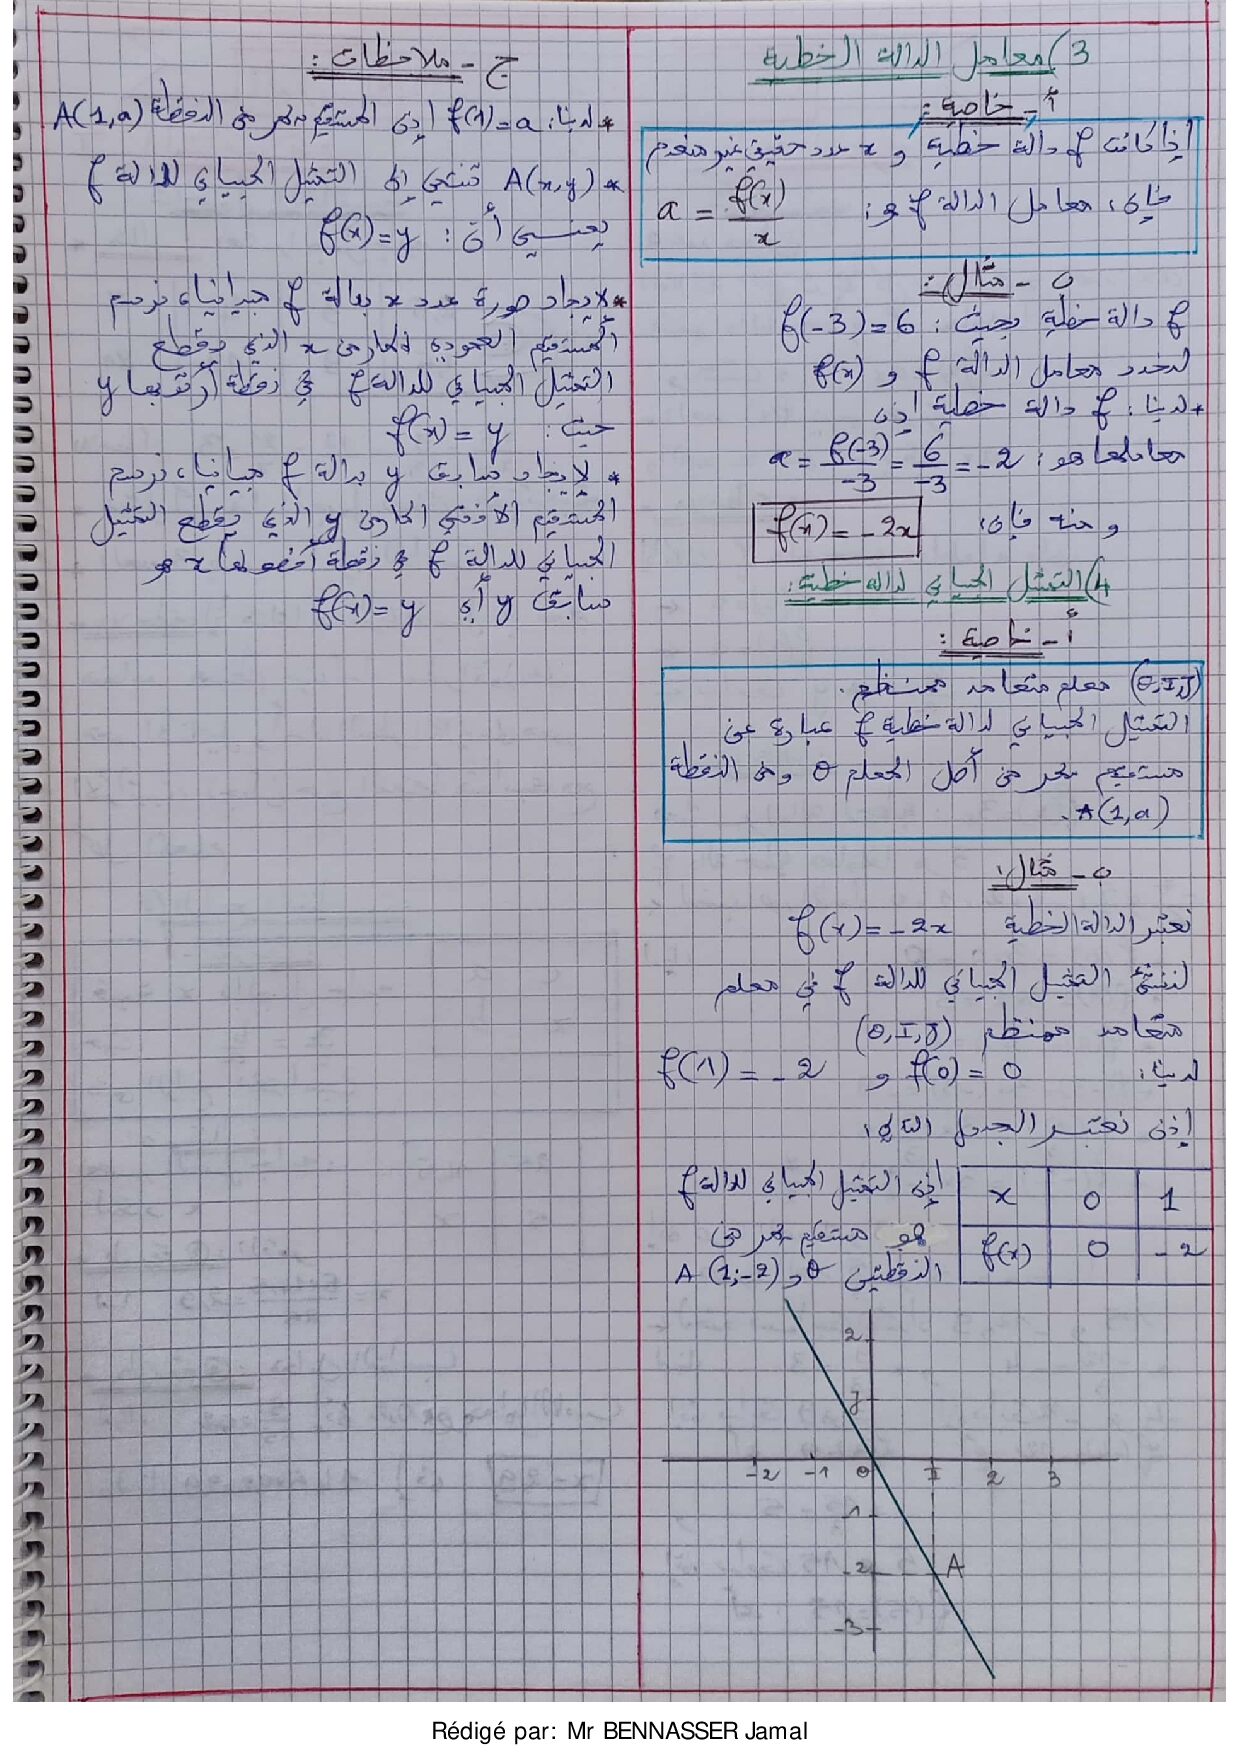 3) معامل الدالة الخطية
أ - خاصية :
إذا كانت f دالة خطية و x عدد حقيقي غير منعدم
فإن، معامل الدالة f هو: a = f(x)/x
ب - مثال :
f دالة خطية بحيث : f(-3)=6
لنحدد معامل الدالة f و f(x)
* لدينا : f دالة خطية إذن
معاملها هو : a = f(-3)/-3 = 6/-3 = -2
و منه فإن: f(x) = -2x
4) التمثيل المبياني لدالة خطية :
أ - خاصية :
(O,I,J) معلم متعامد ممنظم.
التمثيل المبياني لدالة خطية f عبارة عن
مستقيم يمر من أصل المعلم O ومن النقطة
A(1,a).
ب - مثال :
نعتبر الدالة الخطية f(x) = -2x
لننشئ التمثيل المبياني للدالة f في معلم
متعامد ممنظم (O,I,J)
لدينا: f(0) = 0 و f(1) = -2
إذن نعتبر الجدول التالي:
x 0 1
f(x) 0 -2
إذن التمثيل المبياني للدالة f
هو مستقيم يمر من
النقطتين O و A(1;-2)
2
J
-2 -1 O I 2 3
-1
-2 A
-3
ج - ملاحظات :
* لدينا: f(1)=a إذن المستقيم يمر من النقطة A(1,a)
* A(x,y) تنتمي إلى التمثيل المبياني للدالة f
يعني أن : f(x)=y
* لإيجاد صورة عدد x بدالة f مبيانيا، نرسم
المستقيم العمودي المار من x الذي يقطع
التمثيل المبياني للدالة f في نقطة أرتوبها y
حيث : f(x) = y
* لإيجاد سابق y بدالة f مبيانيا، نرسم
المستقيم الأفقي المار من y الذي يقطع التمثيل
المبياني للدالة f في نقطة أفصولها x هو
سابق y أي f(x)=y
Rédigé par: Mr BENNASSER Jamal